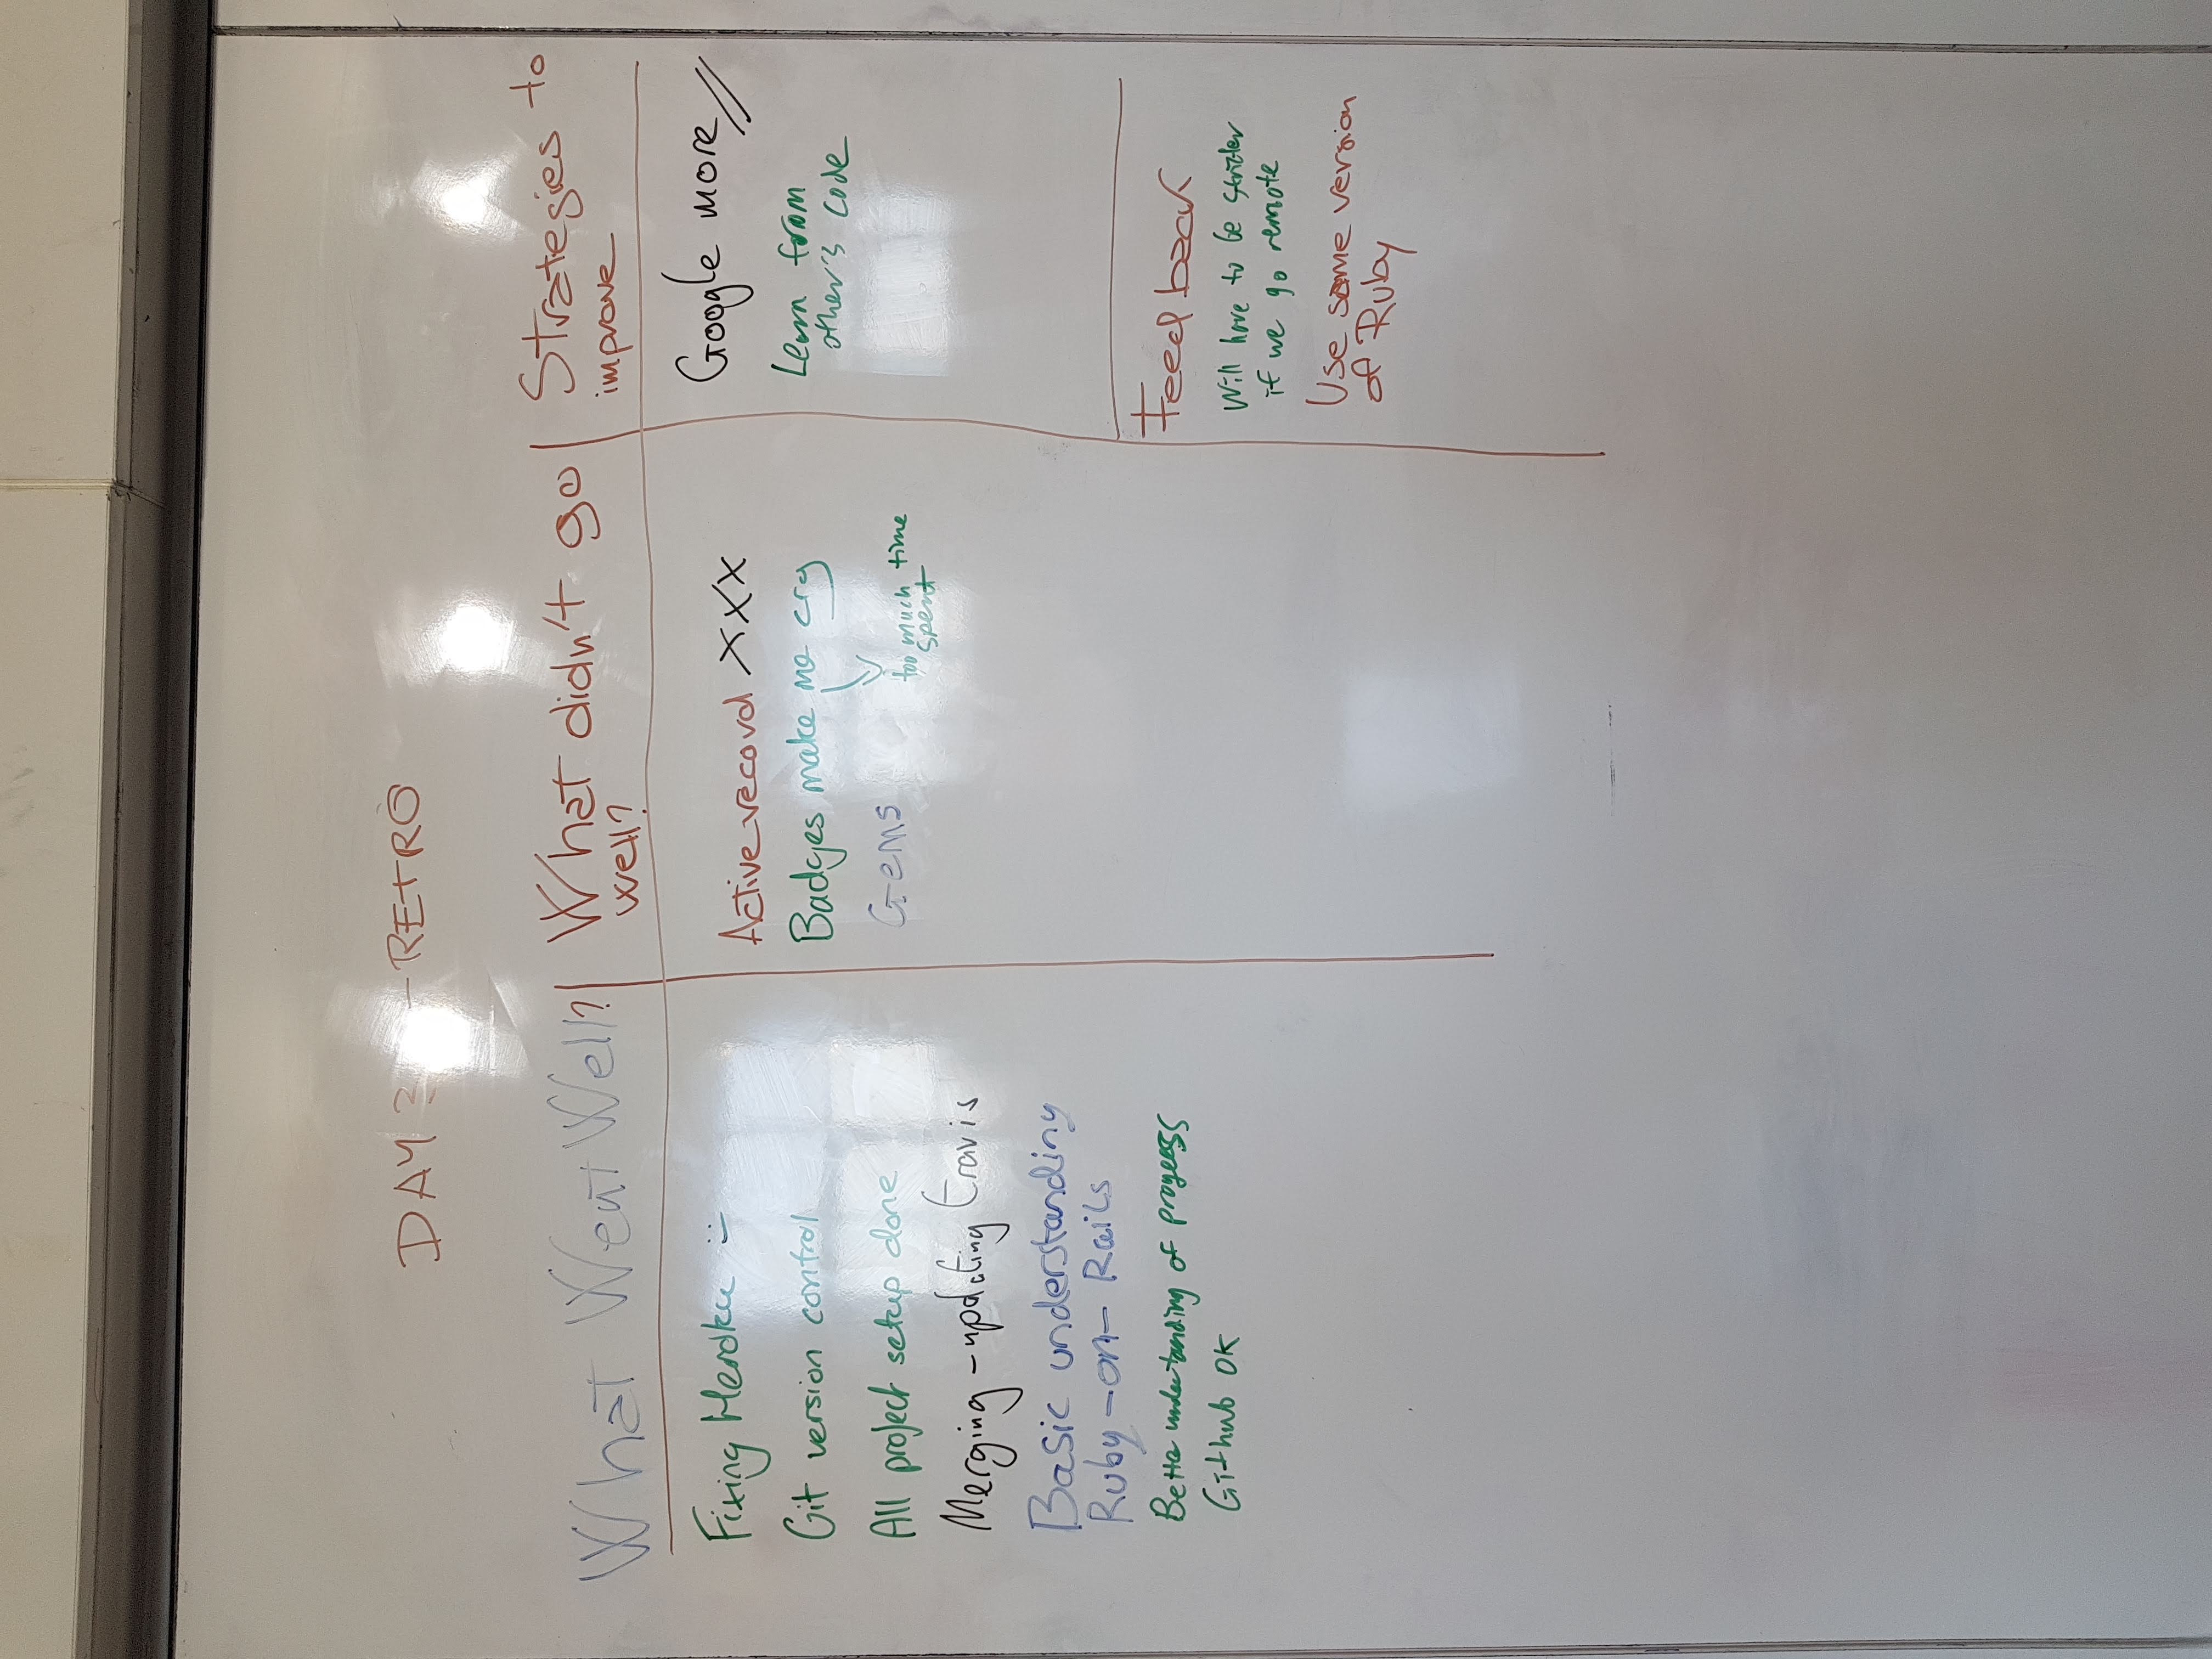 DAY 3 - RETRO
What Went Well?
Fixing Heroku :)
Git version control
All project setup done
Merging - updating travis
Basic understanding
Ruby-on-Rails
Better understanding of progress
Github OK
What didn't go
well?
Active record XXX
Badges make me cry
too much time
spent
Gems
Strategies to
improve
Google more //
Learn from
other's code
Feedback
Will have to be stricter
if we go remote
Use same version
of Ruby